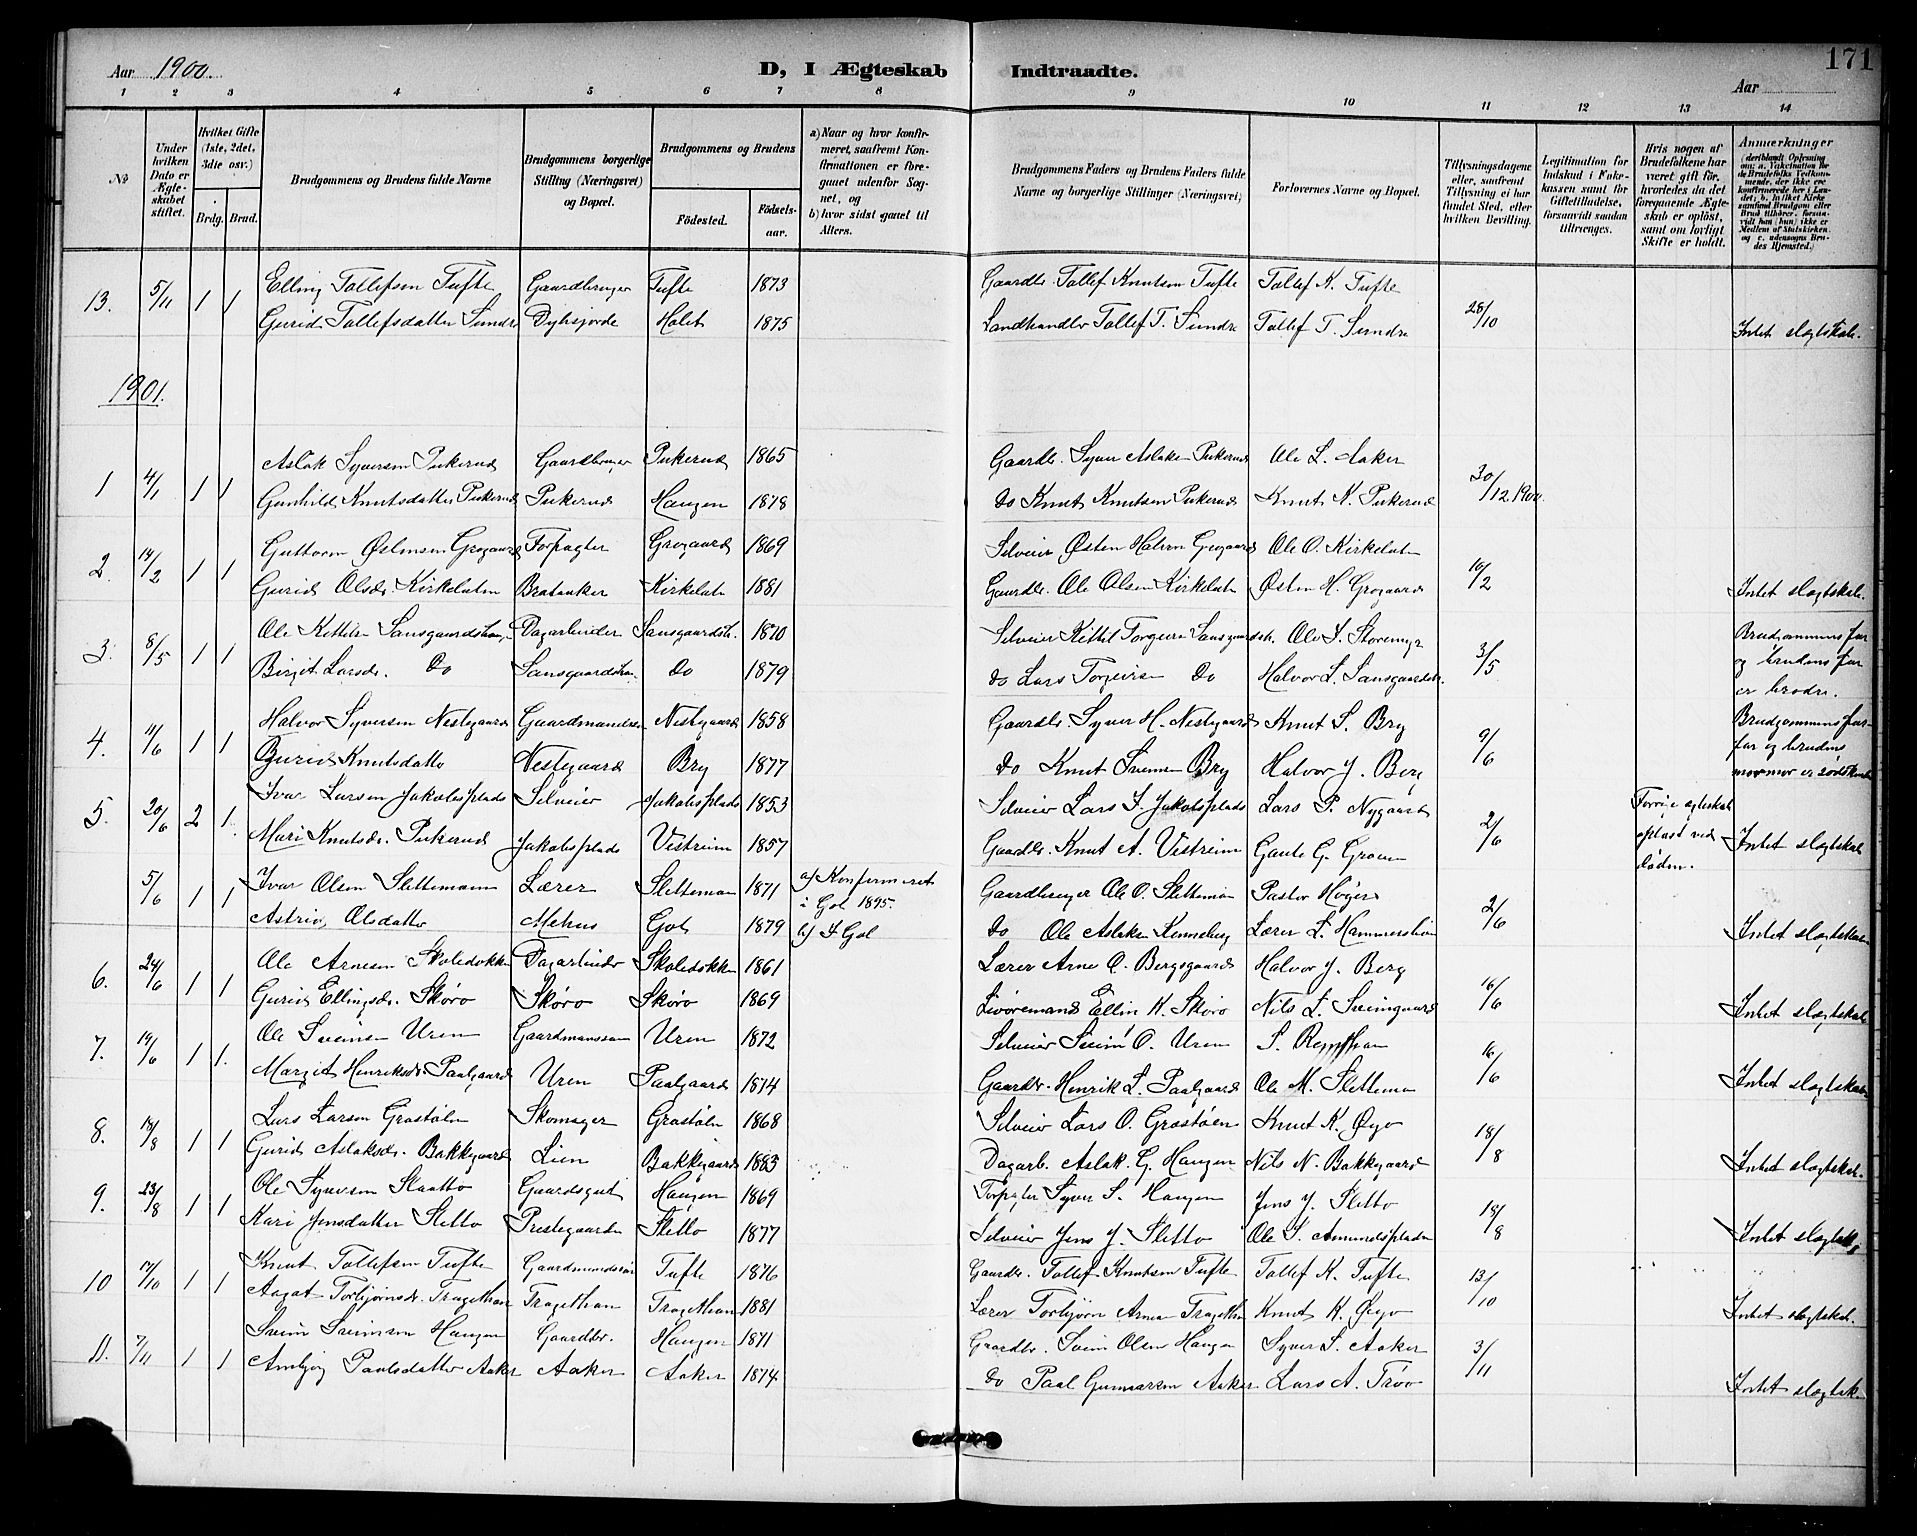 171
Aar 1900.
D, I Ægteskab Indtraadte.
Aar
1 2 3 4 5 6 7 8 9 10 11 12 13 14
No
Under hvilken Dato er Ægteskabet stiftet.
Hvilket Gifte (1ste, 2det, 3die osv.)
Brdg. Brud.
Brudgommens og Brudens fulde Navne
Brudgommens borgerlige Stilling (Næringsvei) og Bopæl.
Brudgommens og Brudens
Födested. Födselsaar.
a) Naar og hvor konfirmeret, saafremt Konfirmationen er foregaaet udenfor Sognet, og
b) hvor sidst gaaet til Alters.
Brudgommens Faders og Brudens Faders fulde Navne og borgerlige Stillinger (Næringsvei)
Forlovernes Navne og Bopæl.
Tillysningsdagene eller, saafremt Tillysning ei har fundet Sted, efter hvilken Bevilling.
Legitimation for Indskud i Enkekassen samt for Giftetilladelse, forsaavidt saadan tiltrænges.
Hvis nogen af Brudefolkene har været gift för, hvorledes da det foregaaende Ægteskab er oplöst, samt om lovligt Skifte er holdt.
Anmærkninger (deriblandt Oplysning om: a. Vakcination for de Brudefolks Vedkommende, der ikke ere konfirmerede her i Landet; b. hvilket Kirkesamfund Brudgom eller Brud tilhörer, forsaavidt han (hun) ikke er Medlem af Statskirken og c. udensogns Brudes Hjemsted.)
13. 5/11 1 1 Elling Tollefsen Tufte Gaardbruger Tufte 1873 Gaardbr. Tollef Knutsen Tufte Tollef K. Tufte 28/10
Gurid Tollefsdatter Sundre Holet 1875 Landhandler Tollef T. Sundre Tollef T. Sundre Intet slægtskab.
1901.
1 4/1 1 1 Aslak Syversen Pukerud Gaardbruger Pukerud 1865 Gaardbr. Syver Aslaksen Pukerud Ole L. Aaker 30/12 1900.
Gunhild Knutsdatter Pukerud Pukerud Haugen 1878 Do Knut Knutsen Pukerud Knut K. Pukerud
2. 14/2 1 1 Guttorm Østensen Grøgaard Forpagter Grøgaard 1869 Selveier Østen Halvors. Grøgaard Ole O. Kirkelien 10/2
Gurid Olsdr. Kirkelien Brataaker 1881 Gaardbr. Ole Olsen Østen H. Grøgaard Intet slægtskab.
3. 8/5 1 1 Ole Kittilsen Sansgaardshaug. Dagarbeider Sansgaardsh. 1870 Selveier Kittil Torgeirsen Sansgaardsh. Ole S. Storemyr 3/5 Brudgommens far
Birgit Larsdr. Do Sansgaardshau. Do 1879 Do Lars Torgeirsen Do Halvor L. Sansgaardsh. og brudens far
er brødre.
4. 11/6 1 1 Halvor Syversen Nestegaard Gaardmandssøn Nestegaard 1858 Gaardbr. Syver H. Nestegaard Knut S. Bry 9/6 Brudgommens far-
Gurid Knutsdatter Nestegaard Bry 1877 Do Knut Svensen Bry Halvor J. Berg far og brudens
mormor er
5. 20/6 2 1. Ivar Larsen Jakobsplads Selveier Jakobsplads 1853 Selveier Lars I. Jakobsplads Lars P. Nygaard 2/6 Forrige ægteskab
Mari Knutsdr. Pukerud Jakobsplads Vistreim 1857 Gaardbr. Knut A. Vistreim Gaute G. opløst ved Intet slægtskab
døden.
5/6 1 1 Ivar Olsen Slettemoen Lærer Slettemoen 1871 a) Konfirmeret Gaardbruger Ole O. Slettemoen Pastor Høyer 2/6
i Gol 1895.
Astrid Olsdatter Mehus Gol 1879 b) I Gol Do Ole Aslaksen Kinneberg Lærer L. Hammersbøn Intet slægtskab
6. 24/6 1 1 Ole Arnesen Skoledokken Dagarbeider Skoledokken 1861 Lærer Arne O. Bergsgaard Halvor J. Berg 16/6
Gurid Ellingsdr. Skøro Skøro Skøro 1869 Ellin K. Skøro Nils L. Sveingaard Intet slægtskab
7. 19/6 1 1. Ole Sveinsen Uren Gaardmanssøn Uren 1872 Selveier Svein O. Uren S. 16/6
Margit Henriksdr. Paalgaard Uren Paalgaard 1874 Gaardbr. Henrik L. Paalgaard Ole M. Slettemoen Intet slægtskab
8. 18/8 1 1 Lars Larsen Grøstølen Skomager Grøstølen 1868 Selveier Lars O. Grøstøen Knut K. Øyo 18/8
Gurid Aslaksdr. Bakkegaard Lien Bakkegaard 1883 Dagarb. Aslak G. Haugen Nils N. Bakkegaard Intet slægtskab.
9. 23/8 1 1 Ole Syversen Slaatto Gaardsgut Haugen 1869 Forpagter Syver S. Haugen Jens J. Sletto 18/8
Kari Jensdatter Sletto Prestegaarden Sletto 1877 Selveier Jens J. Sletto Ole S. Amundsplads Intet slægtskab
10 17/10 1 1 Knut Tollefsen Tufte Gaardmandssøn Tufte 1876 Gaardbr. Tollef Knutsen Tufte Tollef K. Tufte 13/10
Aagot Torbjørnsdr. Tragethon Tragethon Tragethon 1881 Lærer Torbjørn Arnesen Tragethon Knut K. Øyo Intet slægtskab.
11. 7/11 1 1 Svein Sveinsen Haugen Gaardbr. Haugen 1871 Gaardbr. Svein Olsen Haugen Syver S. Aaker 3/11
Ambjør Paulsdatter Aaker Aaker Aaker 1874 Do Paal Gunnarsen Aaker Lars A. Trøo Intet slægtsk.